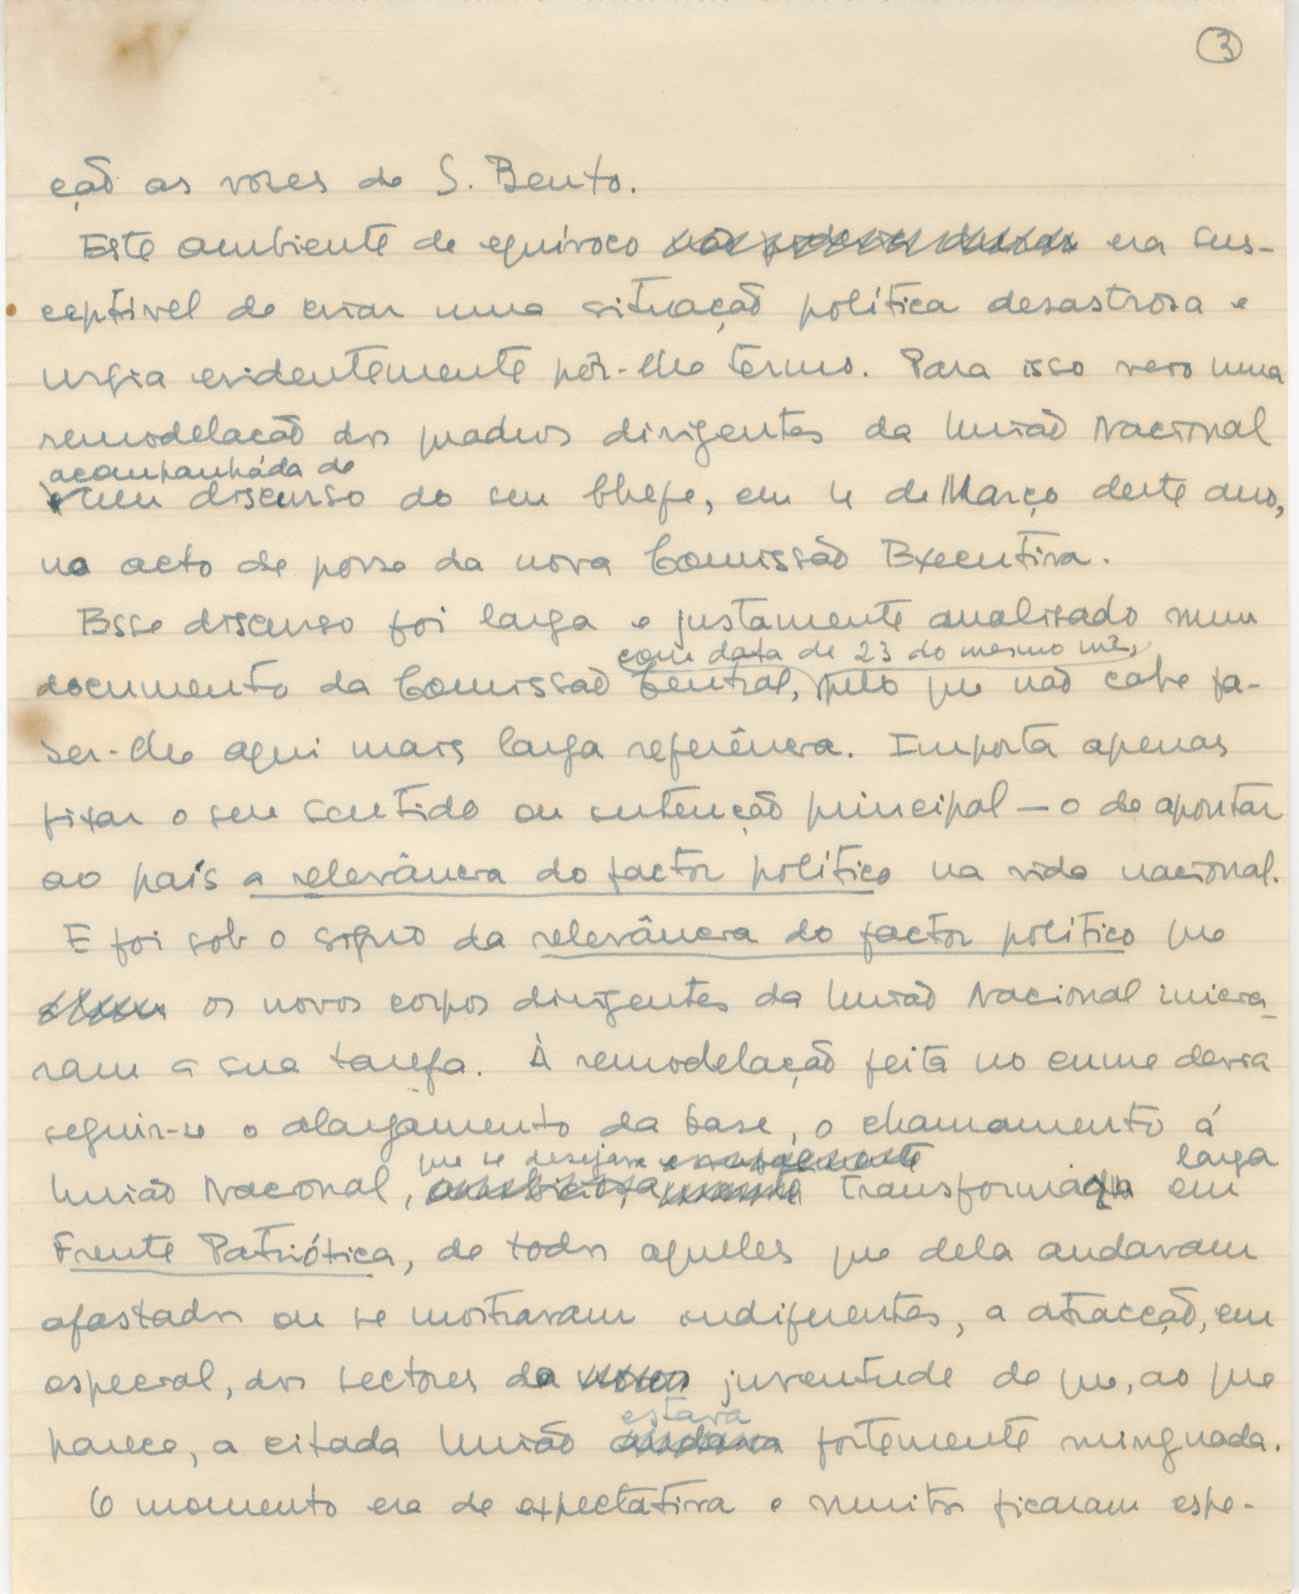 3
eção as vozes de S. Bento.
Este ambiente de equívoco não poderia durar era sus-
ceptível de criar uma situação política desastrosa e
urgia evidentemente pôr-lhe termo. Para isso veio uma
remodelação dos quadros dirigentes da União Nacional
acompanháda de
um discurso do seu Chefe, em 4 de Março deste ano,
no acto de posse da nova Comissão Executiva.
Esse discurso foi larga e justamente analisado num
com data de 23 do mesmo mês,
documento da Comissão Central, pelo que não cabe fa-
zer-lhe aqui mais larga referência. Importa apenas
fixar o seu sentido ou intenção principal — o de apontar
ao país a relevância do factor político na vida nacional.
E foi sob o signo da relevância do factor político que
os novos corpos dirigentes da União Nacional inicia-
ram a sua tarefa. À remodelação feita no cume devia
seguir-se o alargamento da base, o chamamento á
que se desejava larga
União Nacional, transformada em
Frente Patriótica, de todos aqueles que dela andavam
afastados ou se mostravam indiferentes, a atracção, em
especial, dos sectores da juventude de que, ao que
estava
parece, a citada União andava fortemente minguada.
O momento era de expectativa e muitos ficaram espe-